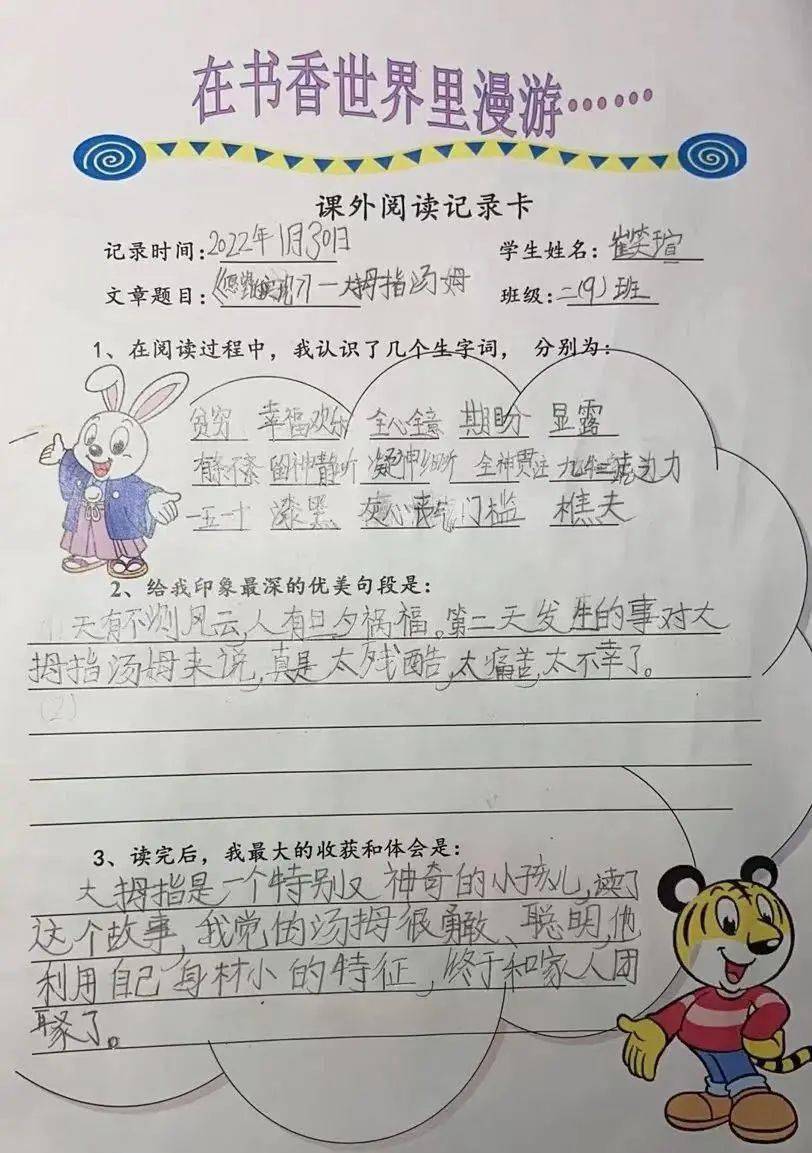 在书香世界里漫游……
课外阅读记录卡
记录时间：2022年1月30日 学生姓名：崔笑瑄
文章题目：《愿望的实现》—大拇指汤姆 班级：二(9)班
1、在阅读过程中，我认识了几个生字词， 分别为：
贫穷 幸福欢乐 全心全意 期盼 显露
有条不紊 留神静听 凝神细听 全神贯注 九牛二虎之力
一五一十 漆黑 灰心丧气 门槛 樵夫
2、给我印象最深的优美句段是：
天有不测风云，人有旦夕祸福。第二天发生的事对大
拇指汤姆来说，真是太残酷，太痛苦，太不幸了。
(2)
3、读完后，我最大的收获和体会是：
大拇指是一个特别又神奇的小孩儿，读了
这个故事，我觉的汤拇很勇敢、聪明，他
利用自己身材小的特征，终于和家人团
聚了。